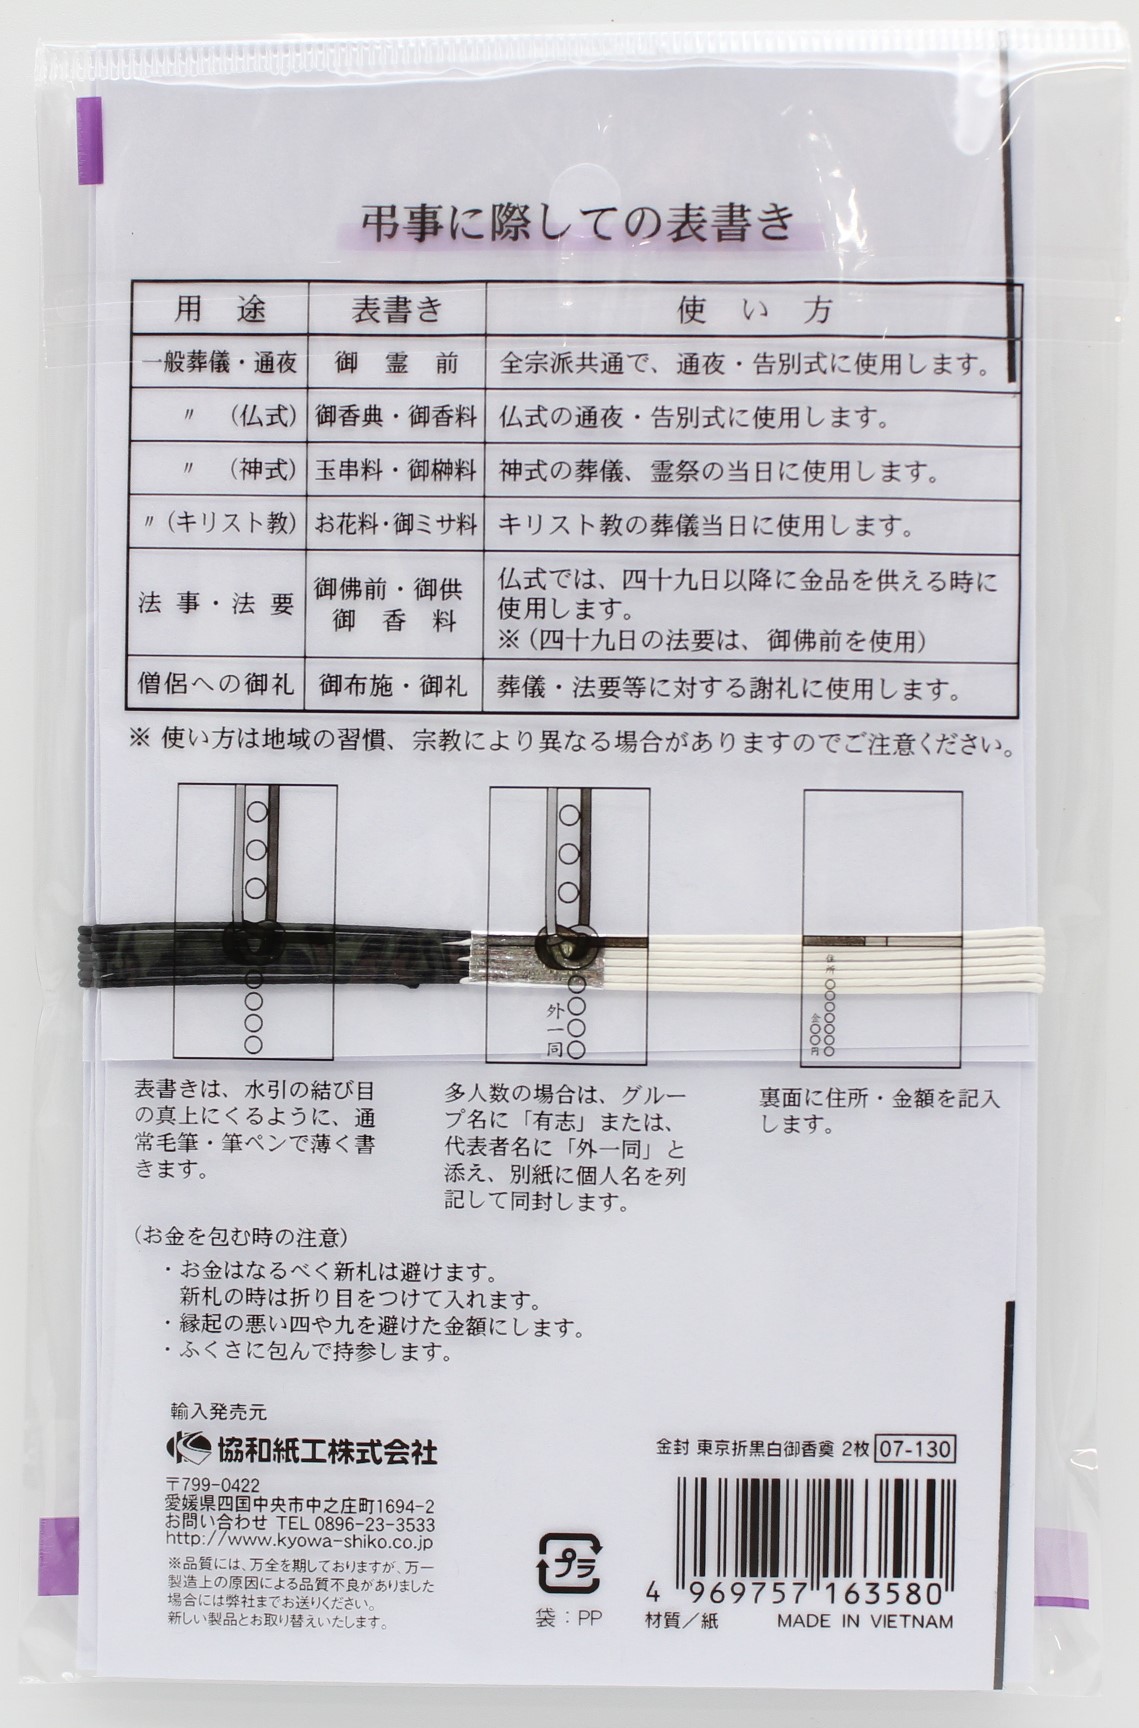 弔事に際しての表書き
用　途　表書き　使　い　方
一般葬儀・通夜　御　霊　前　全宗派共通で、通夜・告別式に使用します。
〃　（仏式）　御香典・御香料　仏式の通夜・告別式に使用します。
〃　（神式）　玉串料・御榊料　神式の葬儀、霊祭の当日に使用します。
〃（キリスト教）　お花料・御ミサ料　キリスト教の葬儀当日に使用します。
法　事・法　要　御佛前・御供　御　香　料　仏式では、四十九日以降に金品を供える時に
使用します。
※（四十九日の法要は、御佛前を使用）
僧侶への御礼　御布施・御礼　葬儀・法要等に対する謝礼に使用します。
※ 使い方は地域の習慣、宗教により異なる場合がありますのでご注意ください。
〇〇〇
〇〇〇〇
〇〇〇
〇〇〇〇
外一同
住所 〇〇〇〇〇〇〇
金〇〇〇円
表書きは、水引の結び目
の真上にくるように、通
常毛筆・筆ペンで薄く書
きます。
多人数の場合は、グルー
プ名に「有志」または、
代表者名に「外一同」と
添え、別紙に個人名を列
記して同封します。
裏面に住所・金額を記入
します。
（お金を包む時の注意）
・お金はなるべく新札は避けます。
新札の時は折り目をつけて入れます。
・縁起の悪い四や九を避けた金額にします。
・ふくさに包んで持参します。
輸入発売元
協和紙工株式会社
〒799-0422
愛媛県四国中央市中之庄町1694-2
お問い合わせ TEL 0896-23-3533
http://www.kyowa-shiko.co.jp
※品質には、万全を期しておりますが、万一
製造上の原因による品質不良がありました
場合には弊社までお送りください。
新しい製品とお取り替えいたします。
プラ
袋：PP
金封 東京折黒白御香奠 2枚 07-130
4 969757 163580
材質／紙　MADE IN VIETNAM